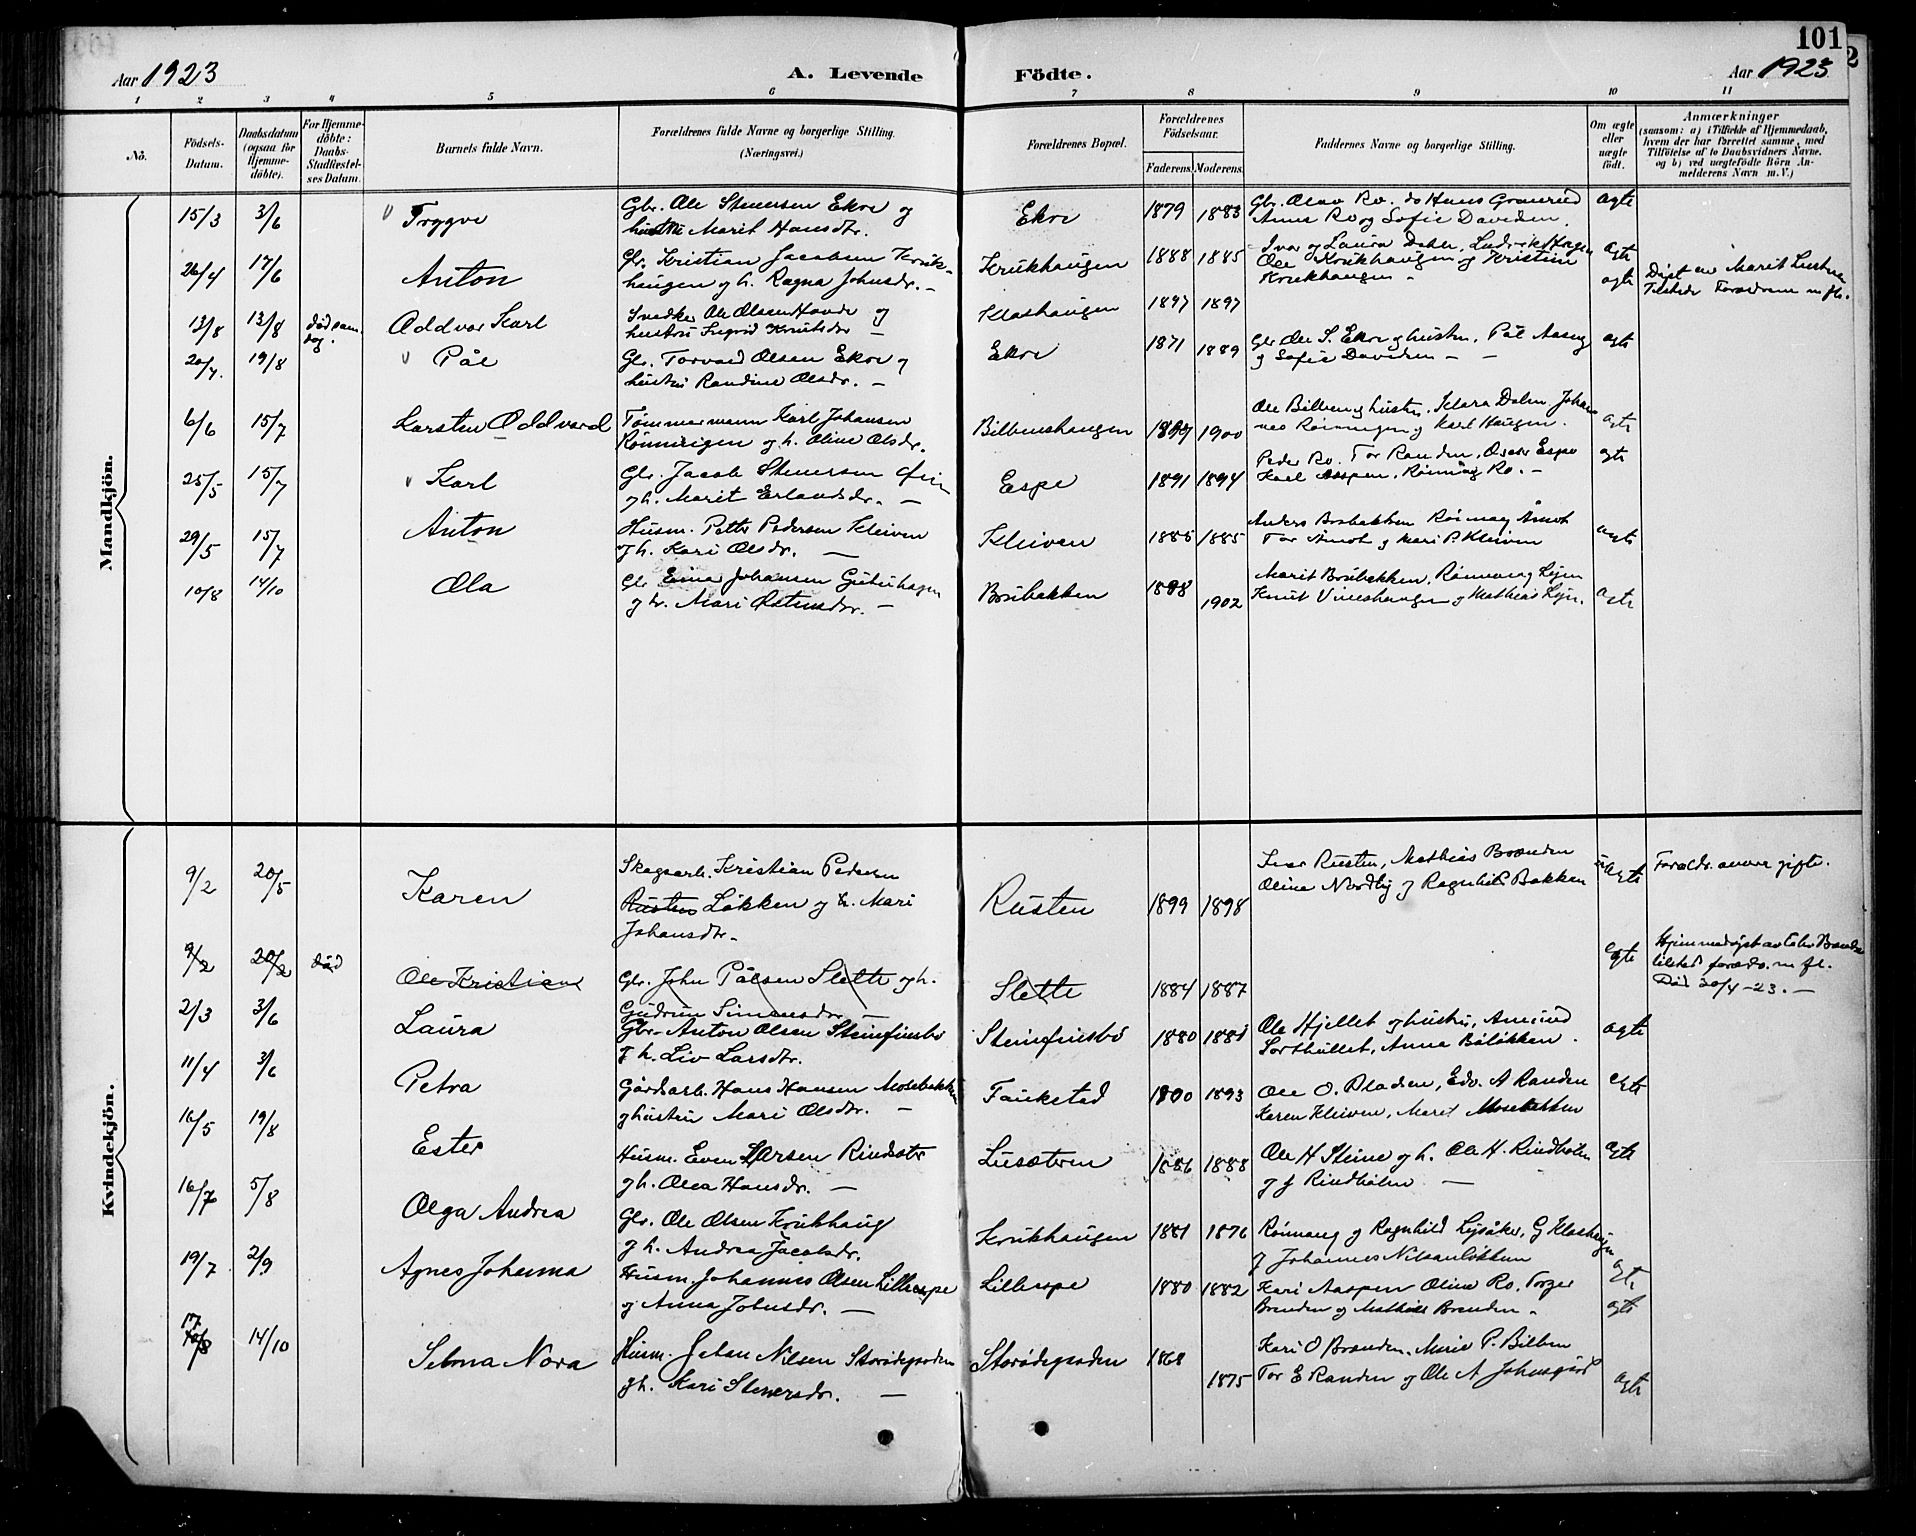 101
Aar 1923
A. Levende Födte.
Aar 1923
1 2 3 4 5 6 7 8 9 10 11
Nô.
Födsels-Datum.
Daabsdatum (ogsaa for Hjemme-döbte).
For Hjemme-döbte: Daabs-Stadfæstel-ses Datum.
Barnets fulde Navn.
Forældrenes fulde Navne og borgerlige Stilling.
(Næringsvei.)
Forældrenes Bopæl.
Forældrenes Födselsaar.
Faderens. Moderens.
Faddernes Navne og borgerlige Stilling.
Om ægte eller uægte födt.
Anmærkninger
(saasom: a) i Tilfælde af Hjemmedaab,
hvem der har forrettet samme, med
Tilföielse af to Daabsvidners Navne.
og b) ved uægtefödte Börn An-
melderens Navn m. V.)
Mandkjön.
15/3 3/6 Trygve Gbr. Ole Stenersen Ekre og
hustru Marit Hansdtr. Ekre 1879 1883 Gbr. Olav Ro. do Hans Granerud
Anne Ro og Sofie Daviden. ægte
26/4 17/6 Anton Gbr. Kristian Jacobsen Kruk-
haugen og h. Ragna Johnsdr. Krukhaugen 1888 1885 Ivar og Laura
Ole Krukhaugen og Kristine
Krukhaugen ægte
13/8 13/8 død sam. dag. Oddvar Karl Snedker Ole Olsen Hovde og
hustru Ingrid Knutsdtr Klashaugen 1897 1897 ægte Døpt av Marit
Tilstede Forældrene m. fl.
20/4. 19/8 Pål Gbr. Torvald Olsen Ekre og
hustru Randine Olsdr. Ekre 1871 1889 Gbr Ole S. Ekre og hustru, Pål
og Sofie Daviden ægte
6/6 15/7 Karsten Oddvard Tømmermann Karl Johansen
Rønningen og h. Oline Olsdr. Bilbenshaugen 1900 Ole Bilben og hustru, Klara Dalen, Johan-
nes Rønningen og Karl Haugen. ægte
25/5 15/7 Karl Gbr. Jacob Stenersen
og h. Marit Erlandsdr. Espe 1891 1894 Peder Ro. Tor Randen, Oscar Espe
Karl Aaspen, Rønnaug Ro. ægte
29/5 15/7 Anton Husm. Petter Pedersen Kleiven
og h. Kari Olsdr. Kleiven 1885 1885 Anders Brobakken Rønnaug Åmot
Tor Åmot og Kari P. Kleiven ægte
10/8 14/10 Ola Gbr Einar Johansen
og h. Mari Østensdr. 1898 1902 Marit
Knut og Mathias ægte
Kvindekjön.
9/2 20/5 Karen Skogsarb. Kristian Pedersen
Rusten Løkken og h. Mari
Johansdtr. Rusten 1899 1898 Ivar Rusten, Mathias Brænden
Oline Nordby og Ragnhild Bakken uægte Forældr. gifte.
9/2 20/2 død Ole Kristian Gbr. John Pålsen Slette og h.
Gudrun Simensdr. Slette 1884 1887 ægte Hjemmedøpt av
tilsted forældr. m fl.
Død 20/4 -23.
2/3 3/6 Laura Gbr. Anton Olsen Steinfinsbø
og h. Liv Larsdtr. Steinfinsbø 1880 1881 Ole Hjellet og hustru, Amund
Sorthullet, Anna Båløkken. ægte
11/4 3/6 Petra Gårdsarb. Hans Hansen Mosebakken
og hustru Mari Olsdtr. Faukstad 1893 Ole O. Bladen, Edv. A Randen
Karen Kleiven, Marit Mosebakken ægte
16/5 19/8 Ester Husm. Even Larsen
og h. Olea Hansdr. Lusæteren 1886 1888 Ole H Steine og h. Ole H. Rindholen
og Rindholen ægte
16/7 5/8 Olga Andrea Gbr. Ole Olsen Krukhaug
og h. Andrea Jacobsdr. Krukhaugen 1881 1876 Rønnaug og Ragnhild
og Johannes Nilsen Løkken ægte
19/7 2/9 Agnes Johanna Husm. Johannes Olsen Lillespe
og Anna Johnsdr. Lillespe 1880 1882 Kari Aaspen Oline Ro. Torger
Brenden og Mathias Brenden. ægte
17/8 14/10 Selma Nora Husm. Johan Nilsen Storødegarden
og h. Kari Stenersdr. Storødegarden 1868 1875 Kari O Brænden, Marie P. Bilben
Tor E Randen og Ole A Johnsgård ægte